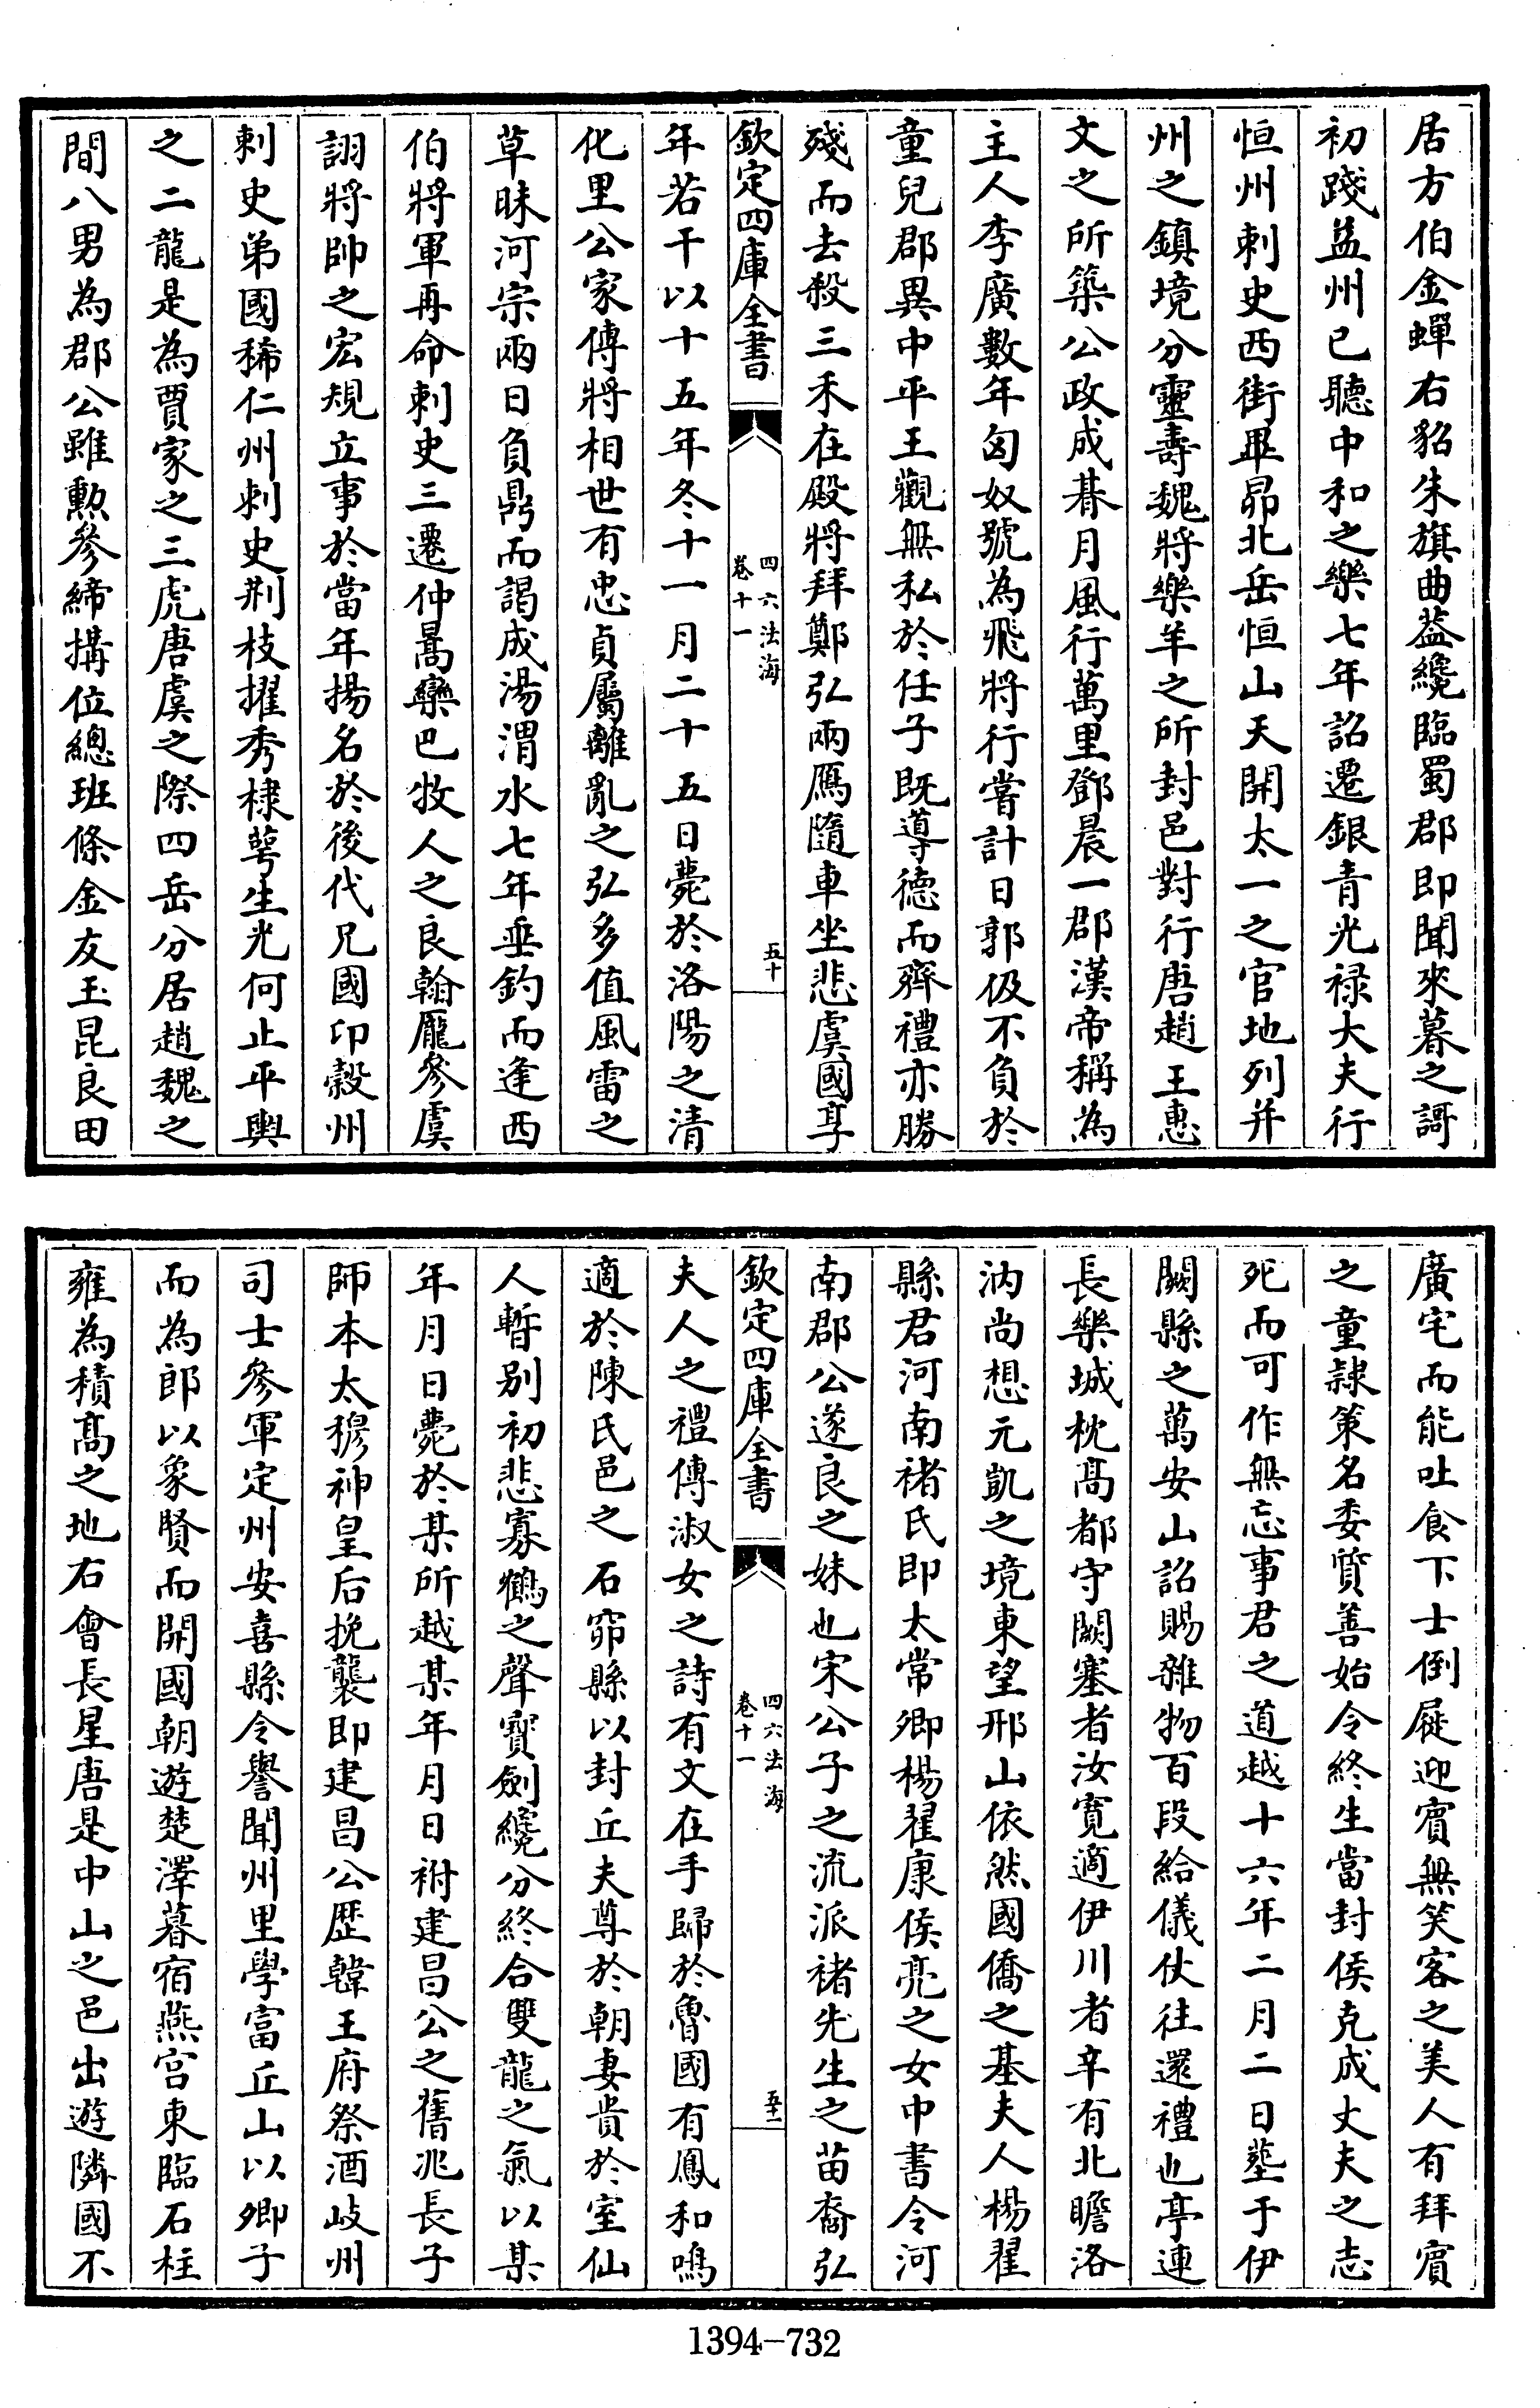 居方伯金蟬右貂朱旗曲葢纔臨蜀郡即聞來暮之謌
初踐益州已聽中和之樂七年詔遷銀青光禄大夫行
恒州刺史西街畢昴北岳恒山天開太一之官地列并
州之鎮境分靈壽魏將樂羊之所封邑對行唐趙王惠
文之所築公政成朞月風行萬里鄧晨一郡漢帝稱為
主人李廣數年匈奴號為飛將行嘗計日郭伋不負於
童兒郡異中平王觀無私於任子既導德而齊禮亦勝
殘而去殺三禾在殿將拜鄭弘兩鴈隨車坐悲虞國享
欽定四庫全書
四六法海
卷十一
五十
年若干以十五年冬十一月二十五日薨於洛陽之清
化里公家傳將相世有忠貞屬離亂之弘多值風雷之
草昧河宗兩日負鼎而謁成湯渭水七年垂釣而逢西
伯將軍再命刺史三遷仲暠欒巴牧人之良翰龎參虞
詡將帥之宏規立事於當年揚名於後代兄國印穀州
刺史弟國稀仁州刺史荆枝擢秀棣萼生光何止平輿
之二龍是為賈家之三虎唐虞之際四岳分居趙魏之
間八男為郡公雖勲參締搆位總班條金友玉昆良田
廣宅而能吐食下士倒屣迎賔無笑客之美人有拜賔
之童隷策名委質善始令終生當封侯克成丈夫之志
死而可作無忘事君之道越十六年二月二日塟于伊
闕縣之萬安山詔賜雜物百段給儀仗往還禮也亭連
長樂城枕髙都守闕塞者汝寛適伊川者辛有北瞻洛
汭尚想元凱之境東望邢山依然國僑之基夫人楊翟
縣君河南褚氏即太常卿楊翟康侯亮之女中書令河
南郡公遂良之妹也宋公子之流派褚先生之苗裔弘
欽定四庫全書
四六法海
卷十一
五十一
夫人之禮傳淑女之詩有文在手歸於魯國有鳳和鳴
適於陳氏邑之石窌縣以封丘夫尊於朝妻貴於室仙
人暫别初悲寡鶴之聲寳劍纔分終合雙龍之氣以某
年月日薨於某所越某年月日祔建昌公之舊兆長子
師本太穆神皇后挽襲即建昌公歴韓王府祭酒岐州
司士參軍定州安喜縣令譽聞州里學富丘山以卿子
而為郎以象賢而開國朝遊楚澤暮宿燕宫東臨石柱
雍為積髙之地右會長星唐是中山之邑出遊隣國不
1394-732